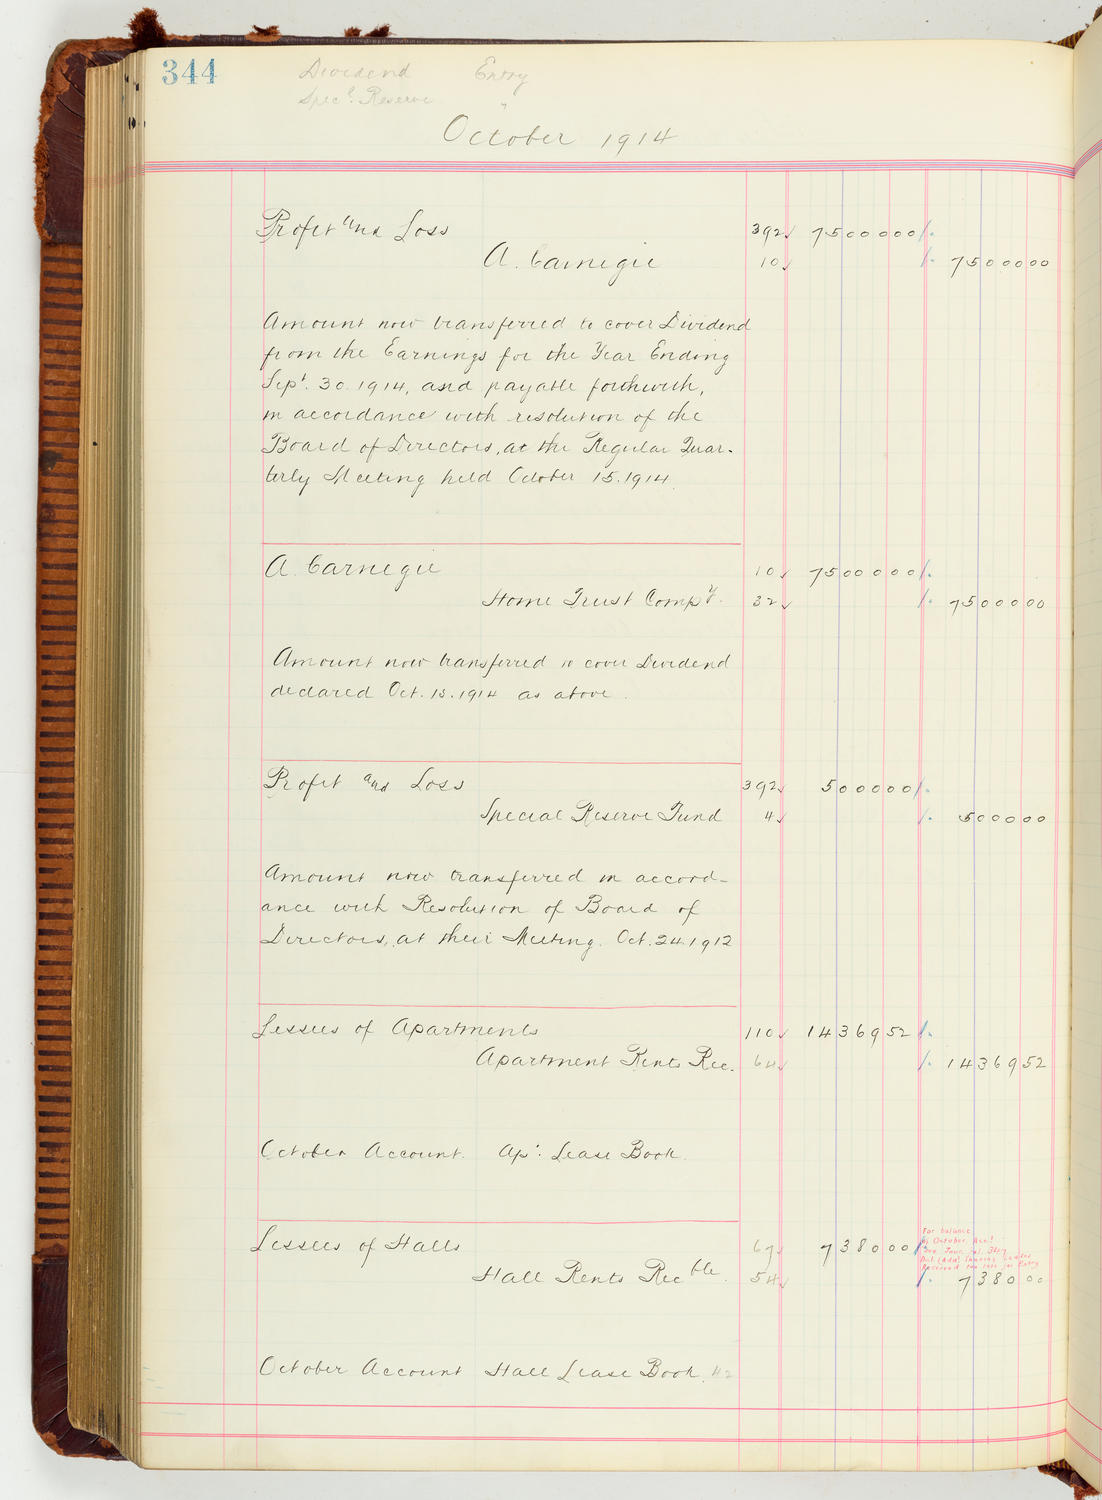 344
Dividend Entry
Spec'l Reserve "
October 1914
Profit and Loss 392 7500000
A. Carnegie 10 7500000
Amount now transferred to cover Dividend
from the Earnings for the Year Ending
Sept. 30. 1914, and payable forthwith,
in accordance with resolution of the
Board of Directors, at the Regular Quar-
terly Meeting held October 15. 1914.
A. Carnegie 10 7500000
Home Trust Compy. 32 7500000
Amount now transferred to cover Dividend
declared Oct. 15. 1914 as above.
Profit and Loss 392 500000
Special Reserve Fund 4 500000
Amount now transferred in accord-
ance with Resolution of Board of
Directors, at their Meeting. Oct. 24. 1912
Lessees of Apartments 110 1436952
Apartment Rents Rec. 64 1436952
October Account. Ap': Lease Book.
For balance
of October Acc't
Lessees of Halls 67 738000
Hall Rents Rec ble. 54 738000
October Account Hall Lease Book. 42